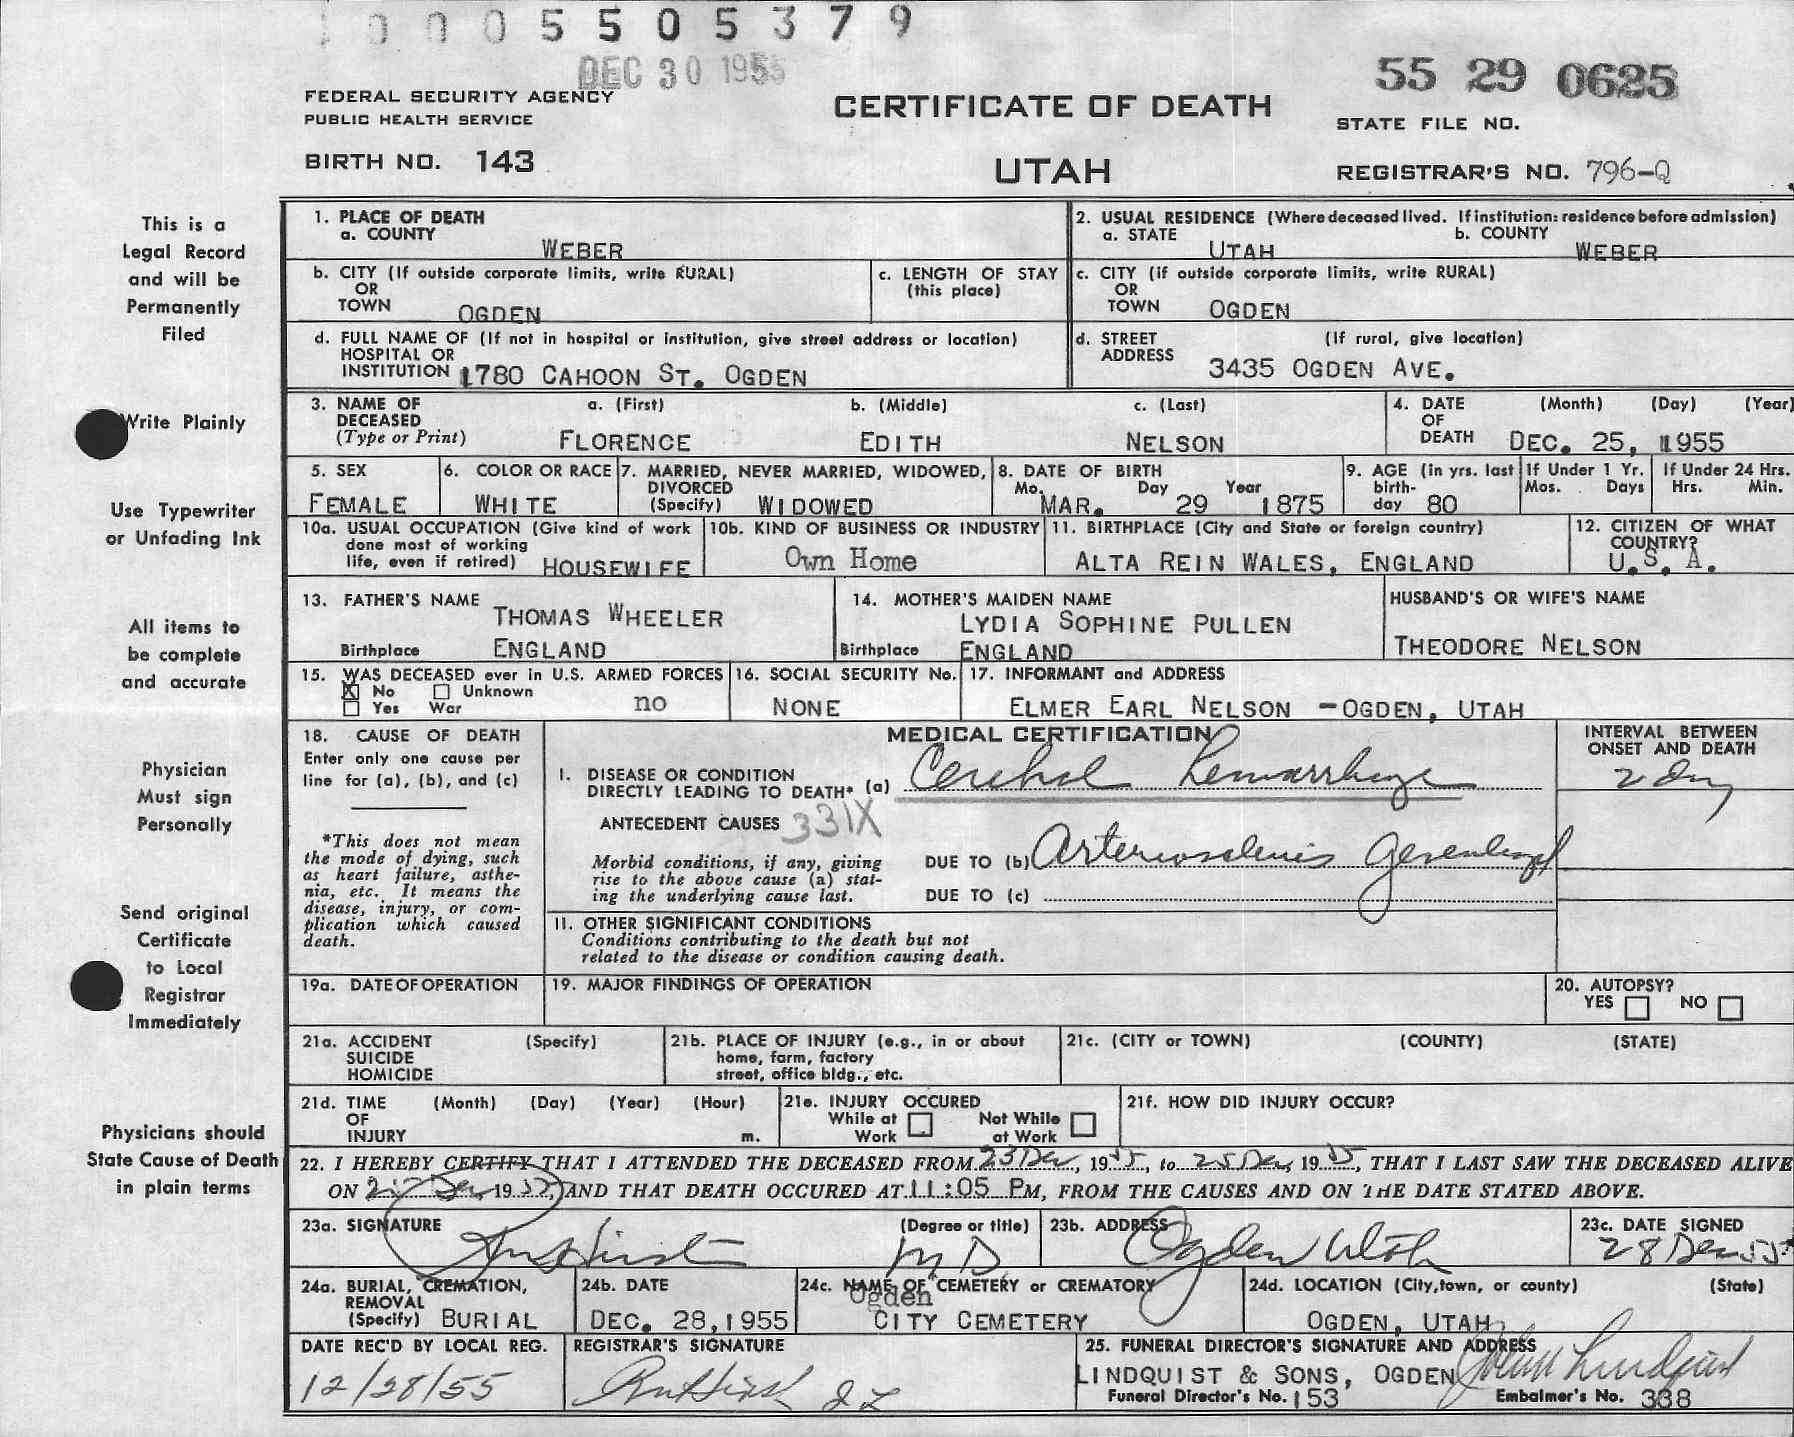 0005505379
DEC 30 1955
55 29 0625
FEDERAL SECURITY AGENCY
PUBLIC HEALTH SERVICE
CERTIFICATE OF DEATH
STATE FILE NO.
BIRTH NO. 143
UTAH
REGISTRAR'S NO. 796-Q
This is a
Legal Record
and will be
Permanently
Filed
Write Plainly
Use Typewriter
or Unfading Ink
All items to
be complete
and accurate
Physician
Must sign
Personally
Send original
Certificate
to Local
Registrar
Immediately
Physicians should
State Cause of Death
in plain terms
1. PLACE OF DEATH
a. COUNTY
WEBER
2. USUAL RESIDENCE (Where deceased lived. If institution: residence before admission)
a. STATE UTAH b. COUNTY WEBER
b. CITY (If outside corporate limits, write RURAL)
OR
TOWN OGDEN
c. LENGTH OF STAY
(this place)
c. CITY (if outside corporate limits, write RURAL)
OR
TOWN OGDEN
d. FULL NAME OF (If not in hospital or institution, give street address or location)
HOSPITAL OR
INSTITUTION 1780 CAHOON ST. OGDEN
d. STREET (If rural, give location)
ADDRESS 3435 OGDEN AVE.
3. NAME OF a. (First) b. (Middle) c. (Last)
DECEASED
(Type or Print) FLORENCE EDITH NELSON
4. DATE (Month) (Day) (Year)
OF
DEATH DEC. 25, 1955
5. SEX
FEMALE
6. COLOR OR RACE
WHITE
7. MARRIED, NEVER MARRIED, WIDOWED,
DIVORCED
(Specify) WIDOWED
8. DATE OF BIRTH
Mo. Day Year
MAR. 29 1875
9. AGE (in yrs. last
birth-
day 80
If Under 1 Yr.
Mos. Days
If Under 24 Hrs.
Hrs. Min.
10a. USUAL OCCUPATION (Give kind of work
done most of working
life, even if retired) HOUSEWIFE
10b. KIND OF BUSINESS OR INDUSTRY
Own Home
11. BIRTHPLACE (City and State or foreign country)
ALTA REIN WALES, ENGLAND
12. CITIZEN OF WHAT
COUNTRY?
U.S.A.
13. FATHER'S NAME
THOMAS WHEELER
Birthplace ENGLAND
14. MOTHER'S MAIDEN NAME
LYDIA SOPHINE PULLEN
Birthplace ENGLAND
HUSBAND'S OR WIFE'S NAME
THEODORE NELSON
15. WAS DECEASED ever in U.S. ARMED FORCES
X No Unknown
Yes War no
16. SOCIAL SECURITY No.
NONE
17. INFORMANT and ADDRESS
ELMER EARL NELSON -OGDEN, UTAH
18. CAUSE OF DEATH
Enter only one cause per
line for (a), (b), and (c)
*This does not mean
the mode of dying, such
as heart failure, asthe-
nia, etc. It means the
disease, injury, or com-
plication which caused
death.
MEDICAL CERTIFICATION
INTERVAL BETWEEN
ONSET AND DEATH
I. DISEASE OR CONDITION
DIRECTLY LEADING TO DEATH* (a) Cerebral hemorrhage
2 day
ANTECEDENT CAUSES 331X
Morbid conditions, if any, giving
rise to the above cause (a) stat-
ing the underlying cause last.
DUE TO (b) Arteriosclerosis generalized
DUE TO (c)
II. OTHER SIGNIFICANT CONDITIONS
Conditions contributing to the death but not
related to the disease or condition causing death.
19a. DATE OF OPERATION
19. MAJOR FINDINGS OF OPERATION
20. AUTOPSY?
YES NO
21a. ACCIDENT (Specify)
SUICIDE
HOMICIDE
21b. PLACE OF INJURY (e.g., in or about
home, farm, factory
street, office bldg., etc.
21c. (CITY or TOWN) (COUNTY) (STATE)
21d. TIME (Month) (Day) (Year) (Hour)
OF
INJURY m.
21e. INJURY OCCURED
While at Not While
Work at Work
21f. HOW DID INJURY OCCUR?
22. I HEREBY CERTIFY THAT I ATTENDED THE DECEASED FROM 23 Dec, 1955, to 25 Dec, 1955, THAT I LAST SAW THE DECEASED ALIVE
ON Dec 1955, AND THAT DEATH OCCURED AT 11:05 PM, FROM THE CAUSES AND ON THE DATE STATED ABOVE.
23a. SIGNATURE (Degree or title)
MD
23b. ADDRESS
Ogden Utah
23c. DATE SIGNED
28 Dec 55
24a. BURIAL, CREMATION,
REMOVAL
(Specify) BURIAL
24b. DATE
DEC. 28,1955
24c. NAME OF CEMETERY or CREMATORY
Ogden
CITY CEMETERY
24d. LOCATION (City,town, or county) (State)
OGDEN, UTAH
DATE REC'D BY LOCAL REG.
12/28/55
REGISTRAR'S SIGNATURE
25. FUNERAL DIRECTOR'S SIGNATURE AND ADDRESS
LINDQUIST & SONS, OGDEN John Lindquist
Funeral Director's No. 153 Embalmer's No. 338